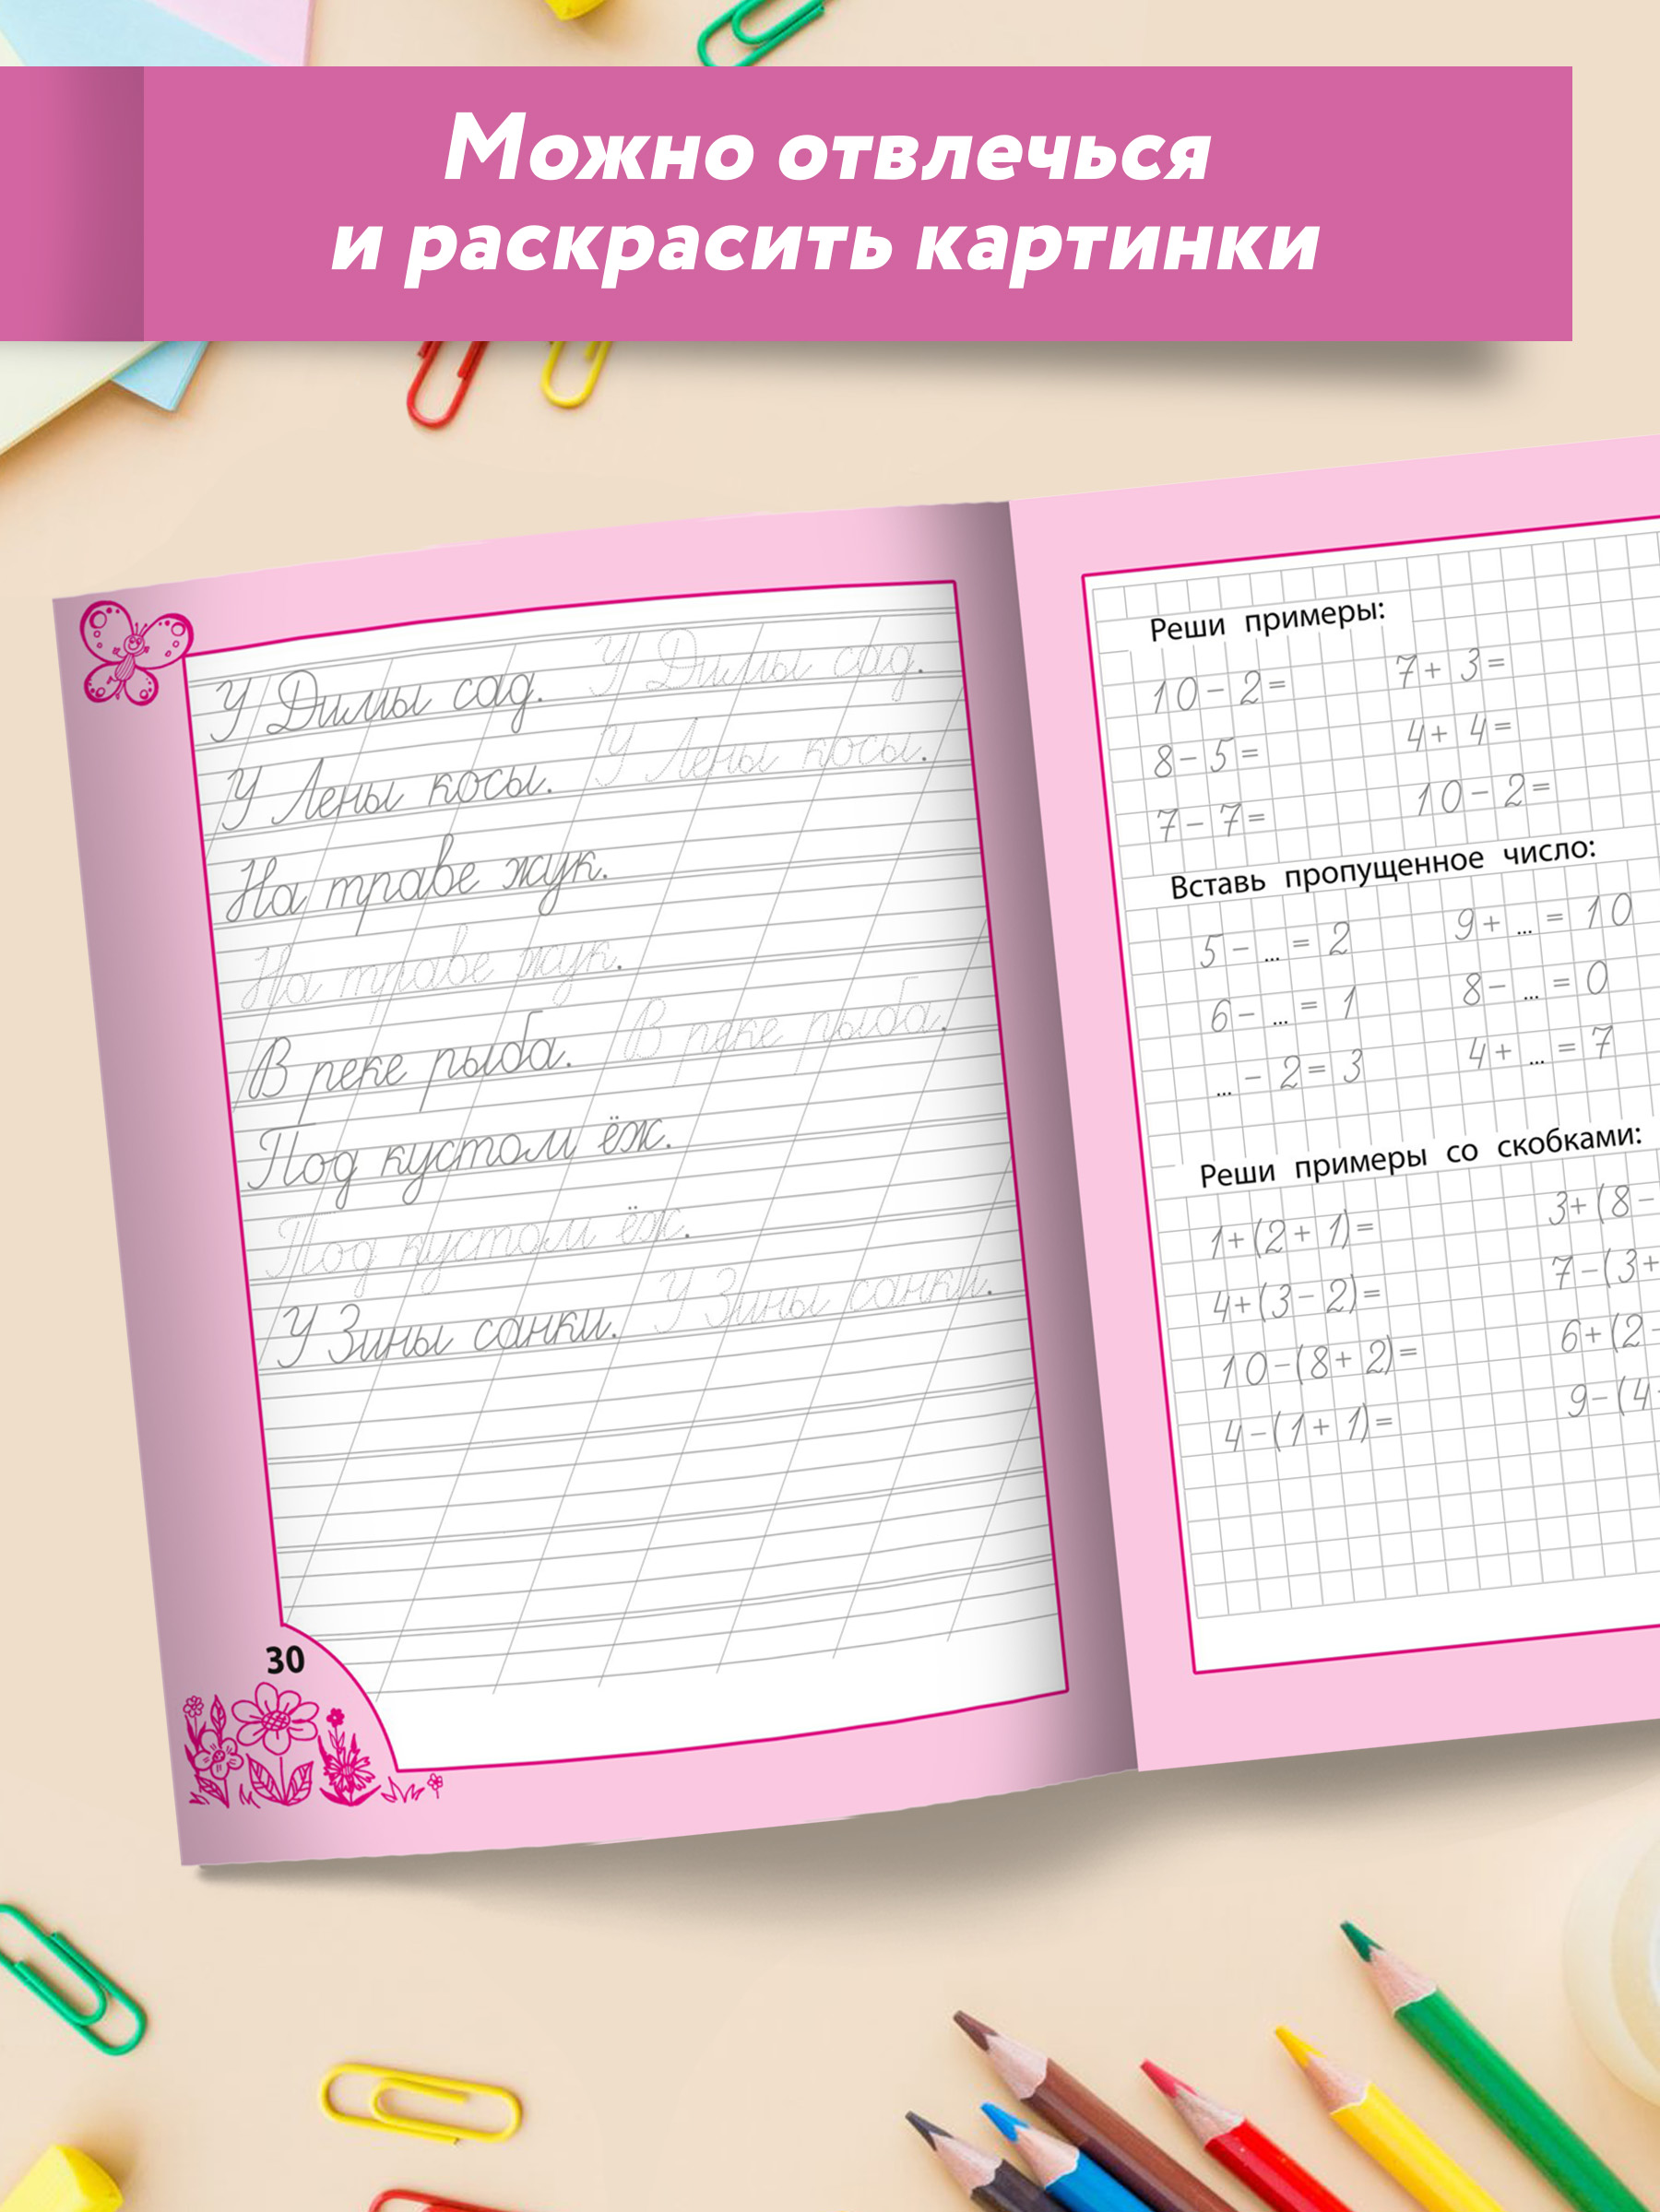 Можно отвлечься
и раскрасить картинки
У Димы сад. У Димы сад.
У Лены косы. У Лены косы.
На траве жук.
На траве жук.
В реке рыба. В реке рыба.
Под кустом ёж.
Под кустом ёж.
У Зины санки. У Зины санки.
30
Реши примеры:
10 - 2 = 7 + 3 =
8 - 5 = 4 + 4 =
7 - 7 = 10 - 2 =
Вставь пропущенное число:
5 - ... = 2 9 + ... = 10
6 - ... = 1 8 - ... = 0
... - 2 = 3 4 + ... = 7
Реши примеры со скобками:
1 + (2 + 1) = 3 + (8 -
4 + (3 - 2) = 7 - (3 +
10 - (8 + 2) = 6 + (2 -
4 - (1 + 1) = 9 - (4